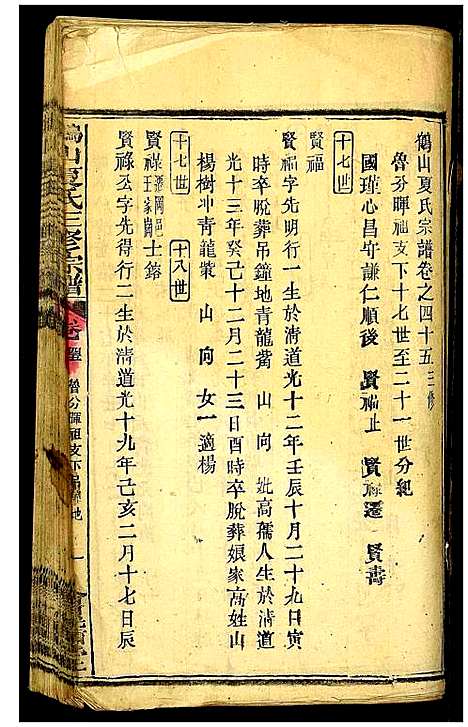 鶴山夏氏宗譜卷之四十五 三修
魯分暉祖支下十七世至二十一世分紀
國瑾心昌守謙仁順後 賢福止 賢祿遷 賢壽
十七世
賢福
賢福字先明行一生於清道光十二年壬辰十月二十九日寅
時卒脫葬吊鐘地青龍嘴 山 向 妣高孺人生於清道
光十三年癸巳十二月二十三日酉時卒脫葬娘家高姓山
楊樹冲青龍縈 山 向 女一適楊
十七世 十八世
賢祿 王家崗 士鎔
賢祿丕字先得行二生於清道光十九年己亥二月十七日辰
山夏氏三修宗譜
卷 魯分暉祖支下 地 一